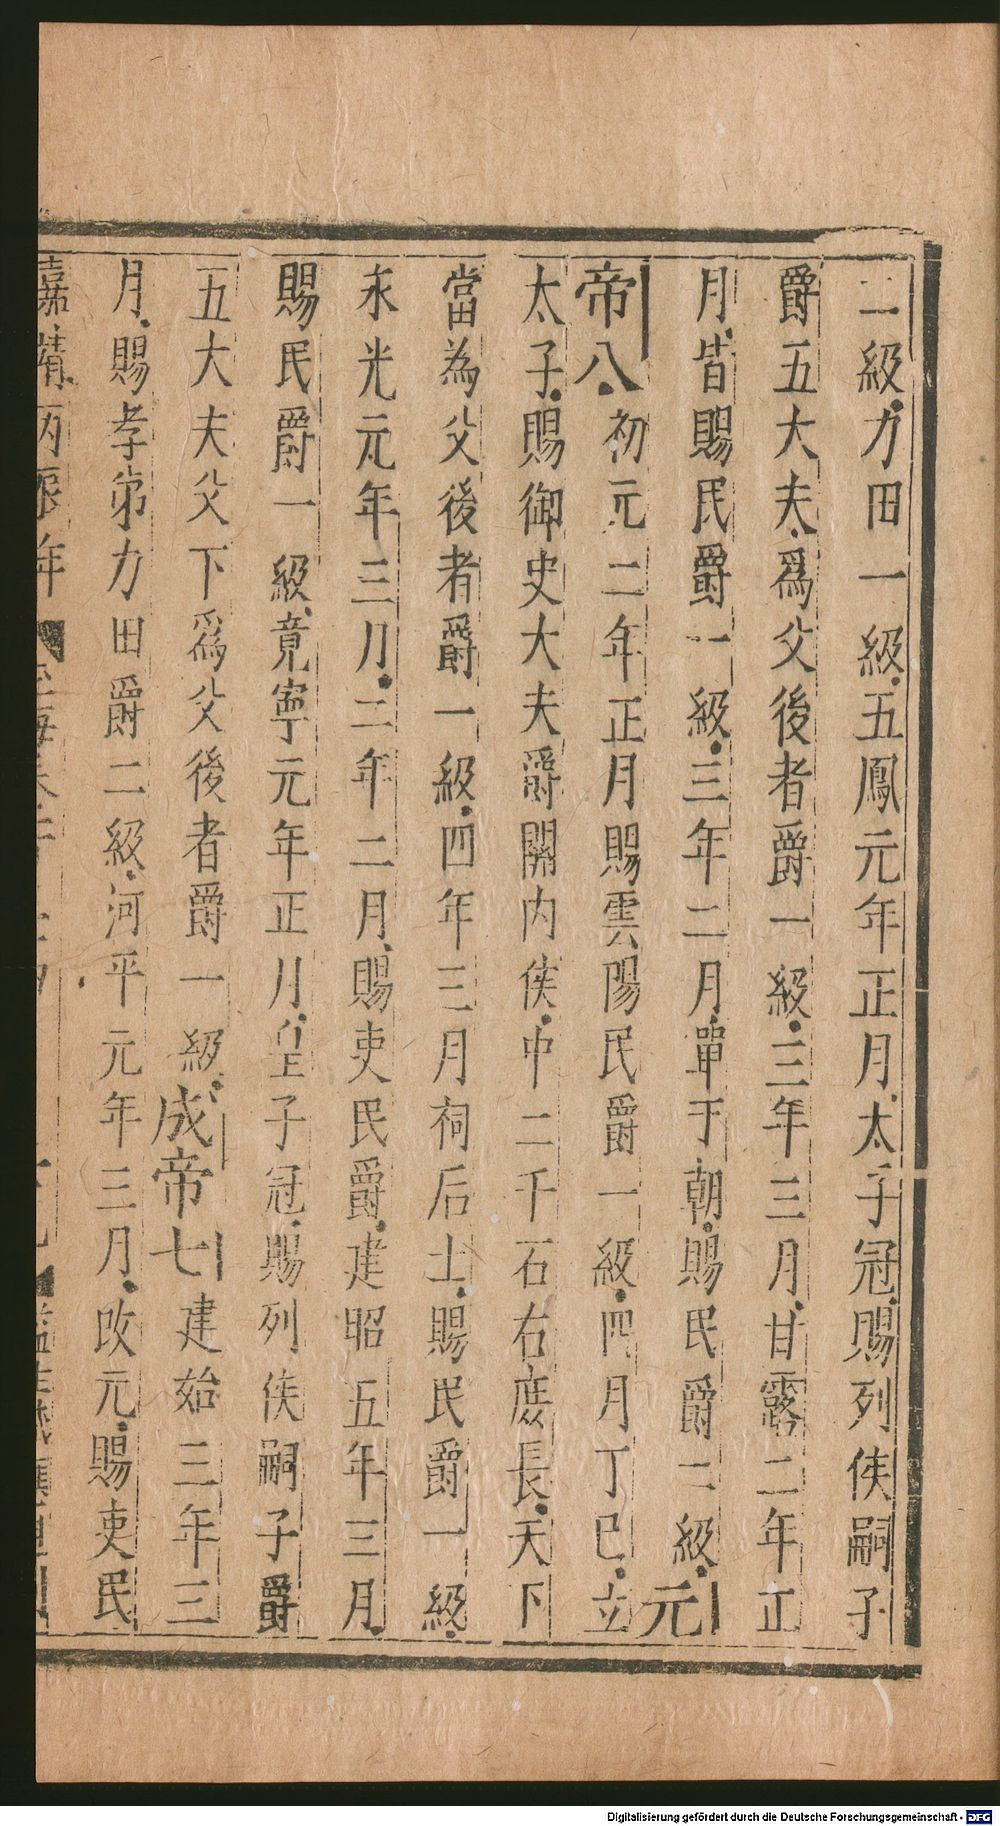 二級力田一級五鳳元年正月太子冠賜列侯嗣子
爵五大夫爲父後者爵一級三年三月甘露二年正
月皆賜民爵一級三年二月單于朝賜民爵二級元
帝八初元二年正月賜雲陽民爵一級四月丁巳立
太子賜御史大夫爵關内侯中二千石右庶長天下
當為父後者爵一級四年三月祠后土賜民爵一級
永光元年三月二年二月賜吏民爵建昭五年三月
賜民爵一級竟寧元年正月皇子冠賜列侯嗣子爵
五大夫父下爲父後者爵一級成帝七建始三年三
月賜孝弟力田爵二級河平元年三月改元賜吏民
嘉靖丙辰年
Digitalisierung gefördert durch die Deutsche Forschungsgemeinschaft - DFG